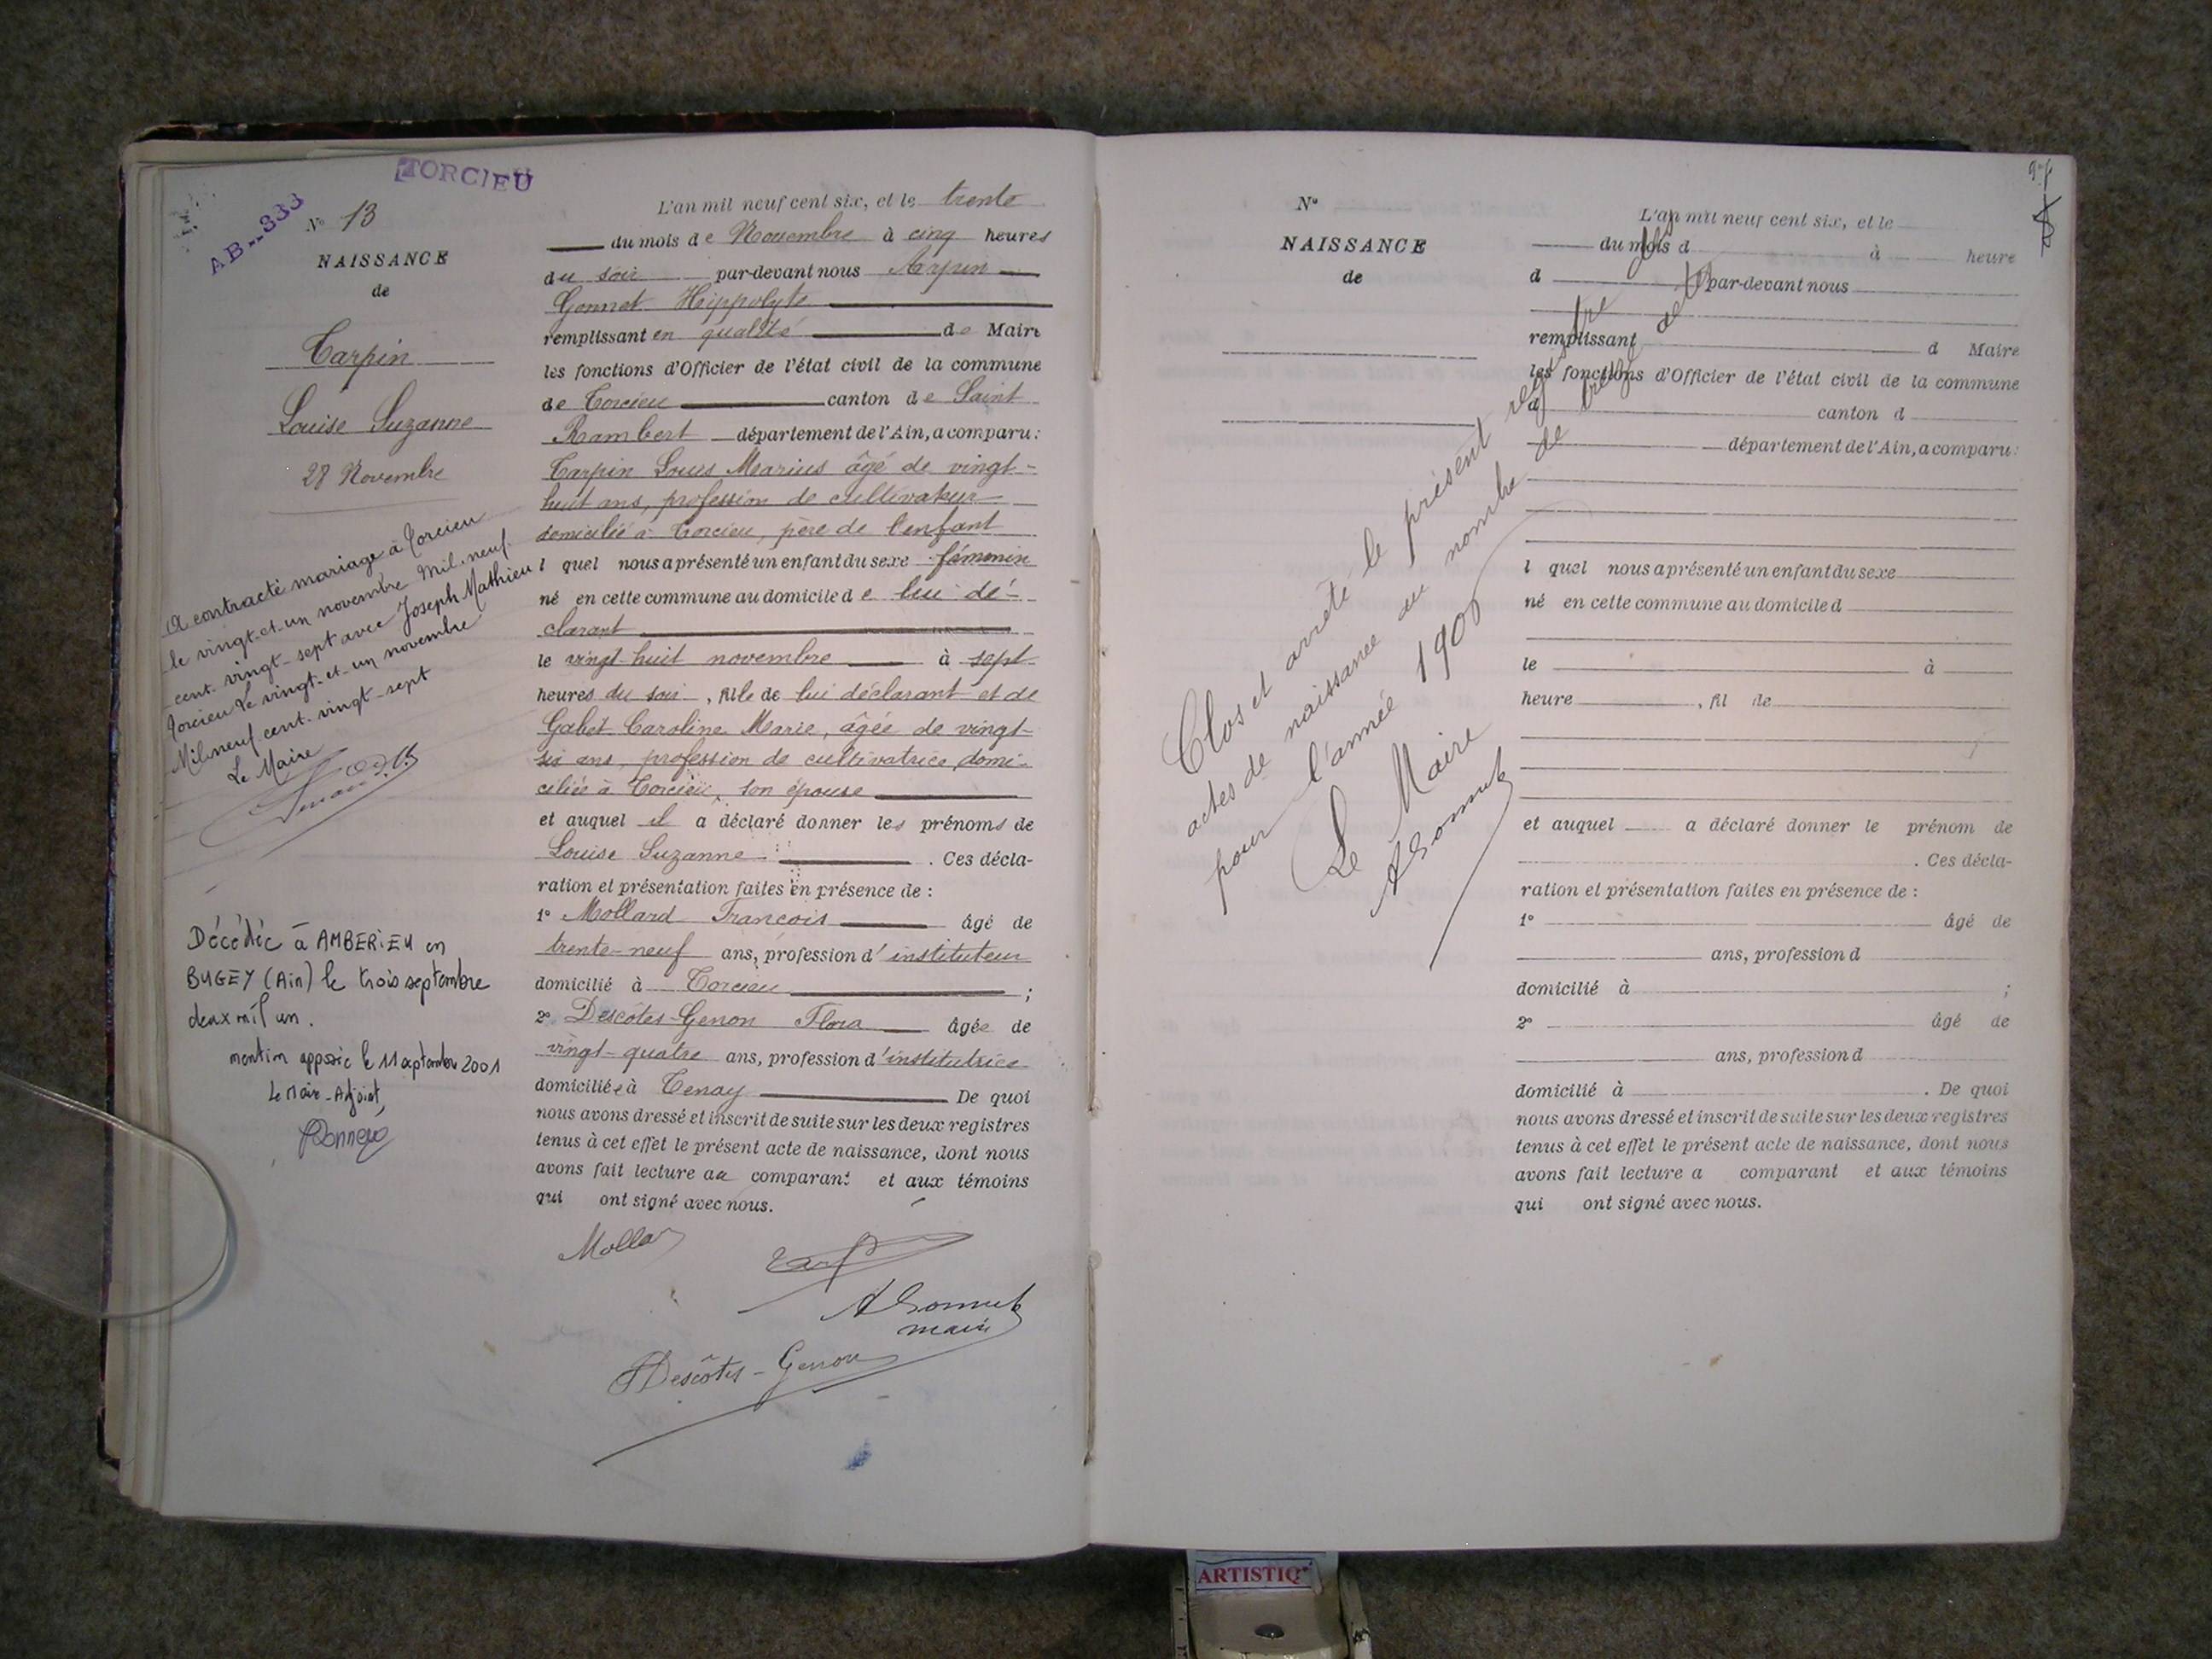 TORCIEU
AB--333
N° 13
NAISSANCE
de
Tarpin
Louise Suzanne
28 Novembre
A contracté mariage à Torcieu
le vingt-et-un novembre Mil-neuf
cent-vingt-sept avec Joseph Mathieu
Torcieu Le vingt-et-un novembre
Mil neuf cent-vingt-sept
Le Maire
Décédée à AMBERIEU en
BUGEY (Ain) le trois septembre
deux mil un.
mention apposée le 11 septembre 2001
Le Maire-Adjoint,
L'an mil neuf cent six, et le trente
du mois de Novembre à cinq heures
du soir par-devant nous Arpin
Gonnet Hippolyte
remplissant en qualité de Maire
les fonctions d'Officier de l'état civil de la commune
de Torcieu canton de Saint
Rambert département de l'Ain, a comparu:
Tarpin Louis Marius âgé de vingt-
huit ans, profession de cultivateur
domicilié à Torcieu, père de l'enfant
l quel nous a présenté un enfant du sexe féminin
né en cette commune au domicile de lui dé-
clarant
le vingt-huit novembre à sept
heures du soir, fille de lui déclarant et de
Gabet Caroline Marie, âgée de vingt-
six ans, profession de cultivatrice, domi-
ciliée à Torcieu, son épouse
et auquel il a déclaré donner les prénoms de
Louise Suzanne. Ces décla-
ration et présentation faites en présence de :
1° Mollard François âgé de
trente-neuf ans, profession d'instituteur
domicilié à Torcieu ;
2° Descôtes-Genon Flora âgée de
vingt-quatre ans, profession d'institutrice
domiciliée à Tenay De quoi
nous avons dressé et inscrit de suite sur les deux registres
tenus à cet effet le présent acte de naissance, dont nous
avons fait lecture au comparant et aux témoins
qui ont signé avec nous.
Mollar
Tarp
AGonnet
maire
Descôtes-Genon
N°
NAISSANCE
de
Clos et arrêté le présent registre des
actes de naissance au nombre de treize
pour l'année 1906
Le Maire
AGonnet
L'an mil neuf cent six, et le
du mois d à heure
d par-devant nous
remplissant d Maire
les fonctions d'Officier de l'état civil de la commune
d canton d
département de l'Ain, a comparu:
l quel nous a présenté un enfant du sexe
né en cette commune au domicile d
le à
heure , fil de
et auquel a déclaré donner le prénom de
. Ces décla-
ration et présentation faites en présence de :
1° âgé de
ans, profession d
domicilié à ;
2° âgé de
ans, profession d
domicilié à . De quoi
nous avons dressé et inscrit de suite sur les deux registres
tenus à cet effet le présent acte de naissance, dont nous
avons fait lecture a comparant et aux témoins
qui ont signé avec nous.
ARTISTIQ